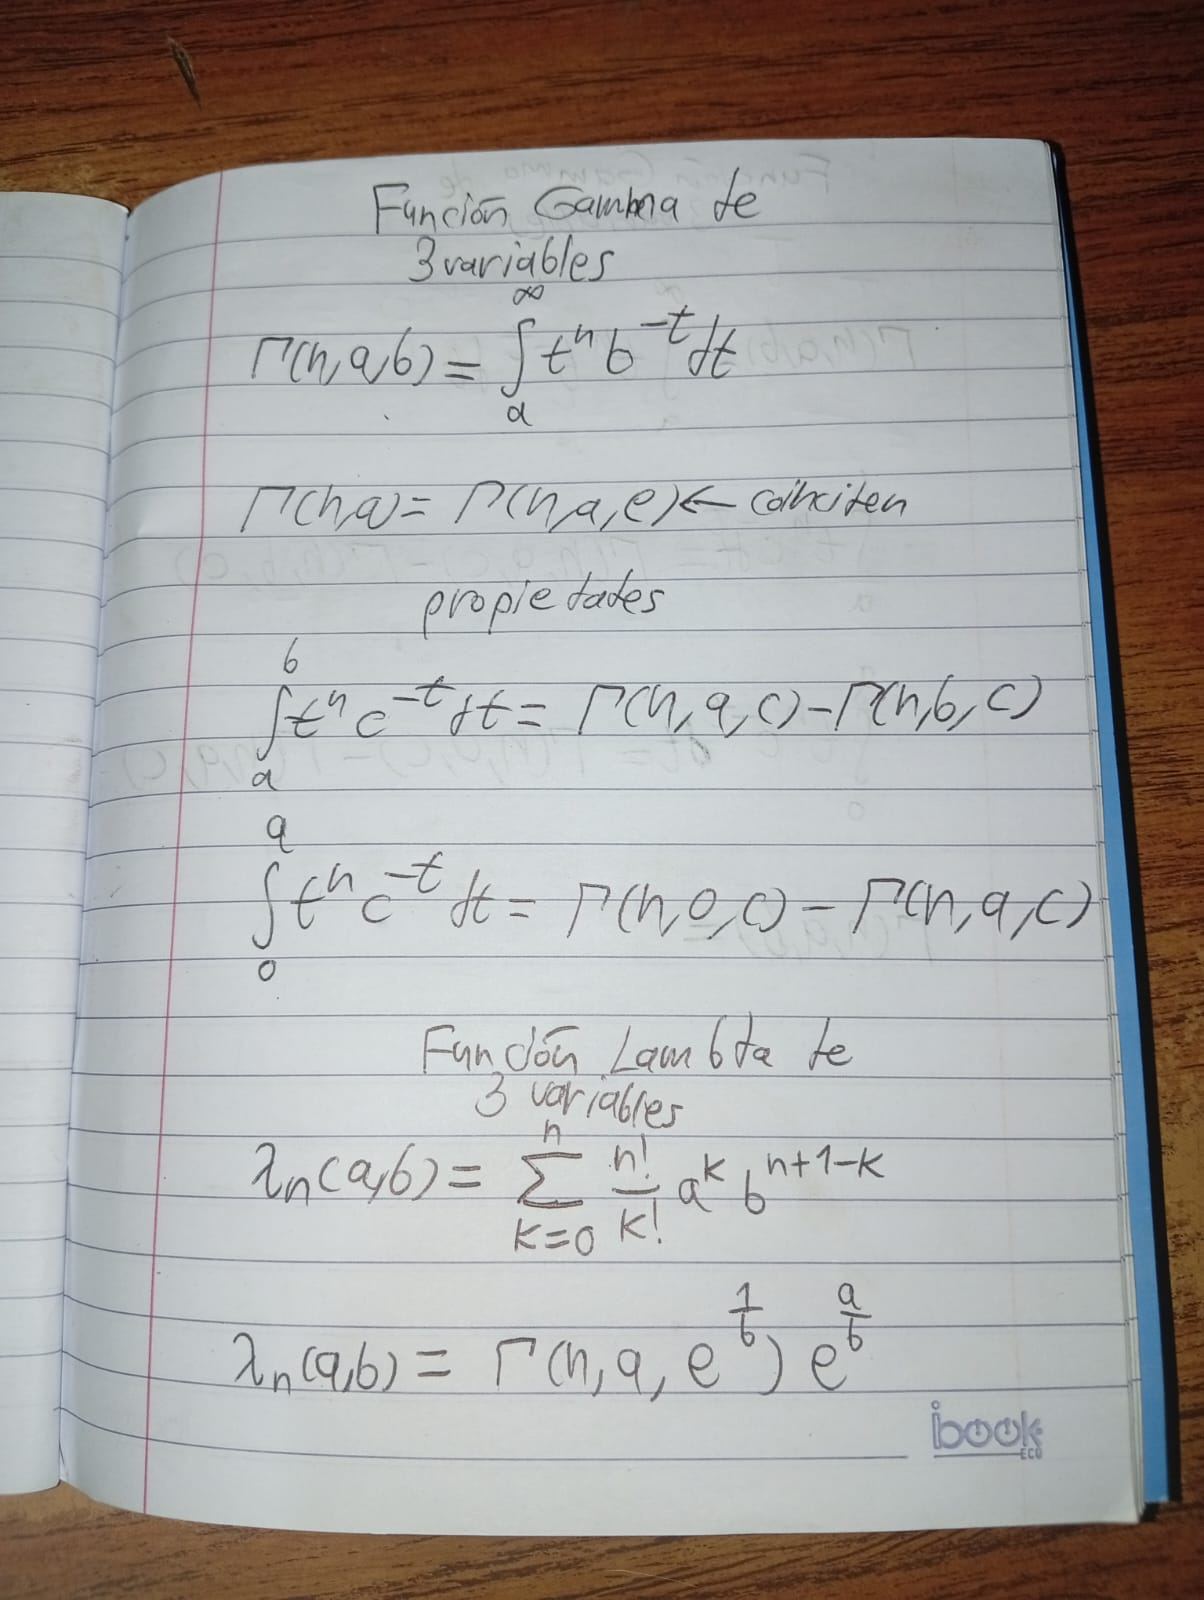 Función Gamma de
3 variables
Γ(n,a,b) = ∫_a^∞ t^n b^{-t} dt
Γ(n,a) = Γ(n,a,e) ← coinciden
propiedades
∫_a^b t^n c^{-t} dt = Γ(n,a,c) - Γ(n,b,c)
∫_0^a t^n c^{-t} dt = Γ(n,0,c) - Γ(n,a,c)
Función Lambda de
3 variables
λ_n(a,b) = ∑_{k=0}^n n!/k! a^k b^{n+1-k}
λ_n(a,b) = Γ(n,a,e^{1/b}) e^{a/b}
ibook
ECO